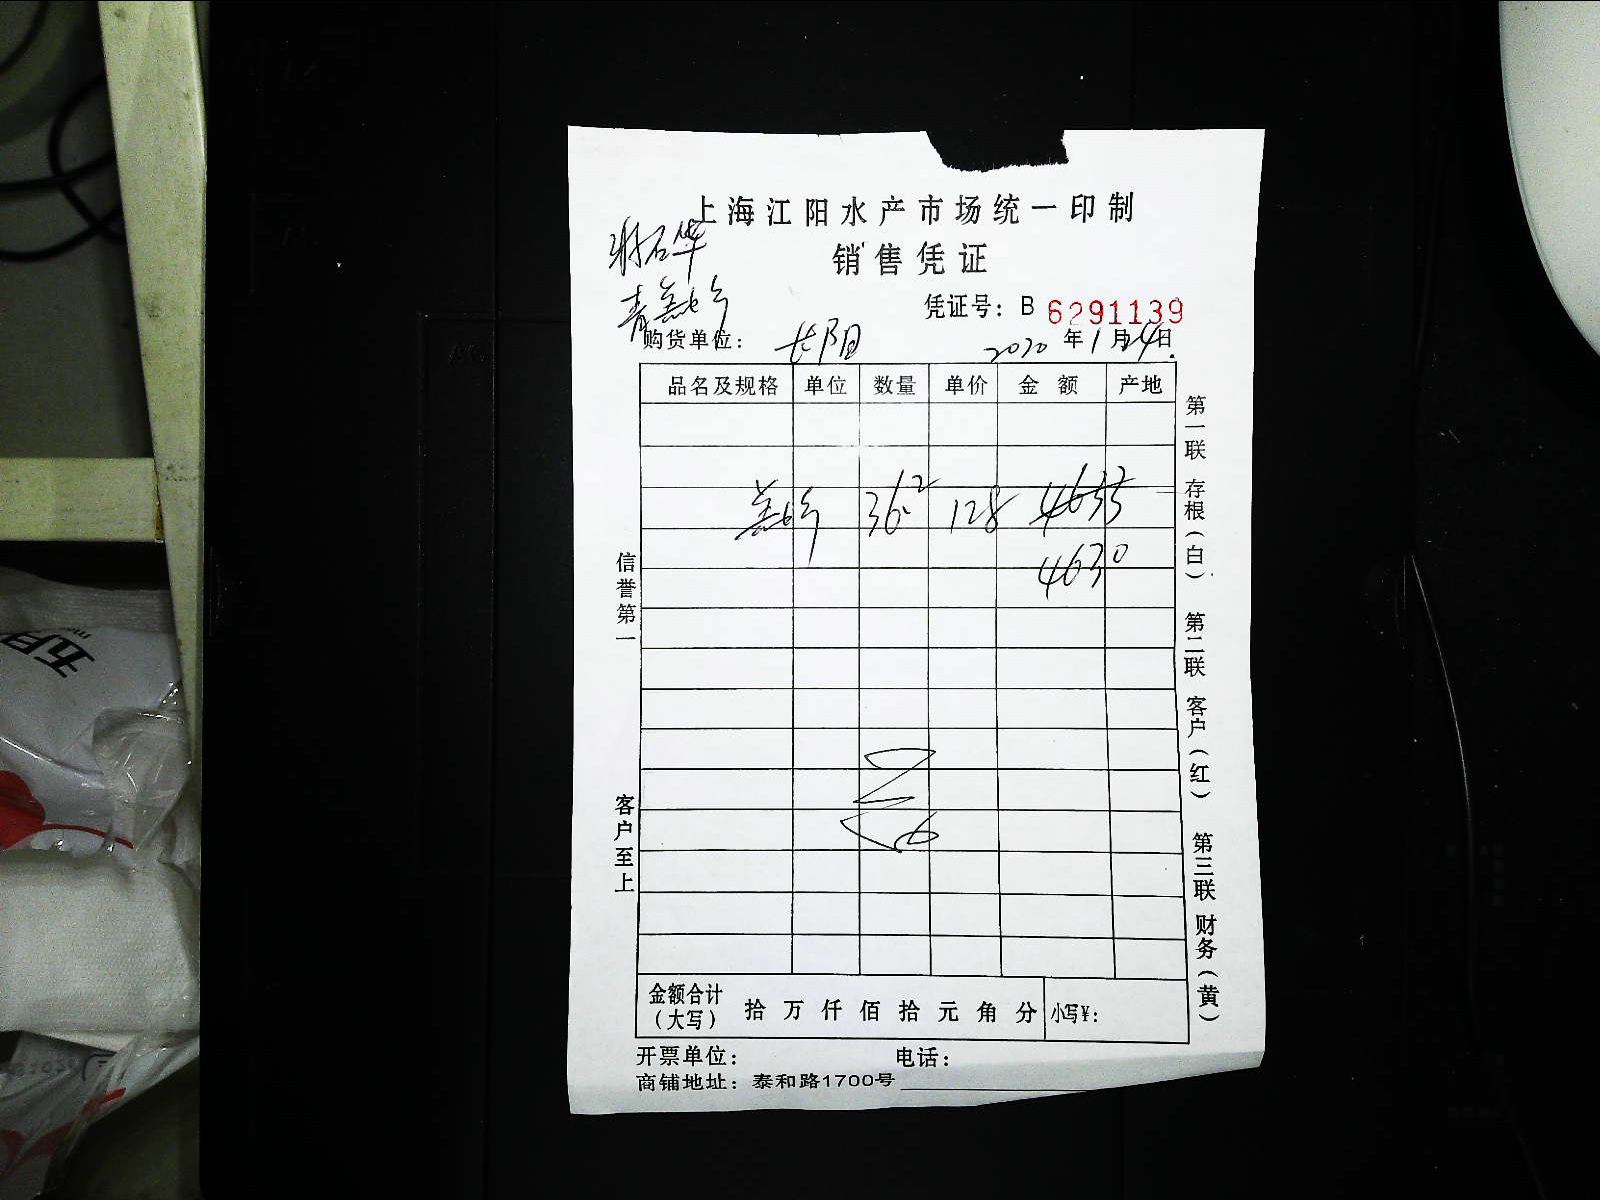 上海江阳水产市场统一印制
销售凭证
凭证号：B 6291139
购货单位：长阳 2020年1月24日
品名及规格 单位 数量 单价 金 额 产地
36.2 128 4633
4630
金额合计（大写） 拾 万 仟 佰 拾 元 角 分 小写¥：
开票单位： 电话：
商铺地址：泰和路1700号
信誉第一
客户至上
第一联 存根（白） 第二联 客户（红） 第三联 财务（黄）
五月